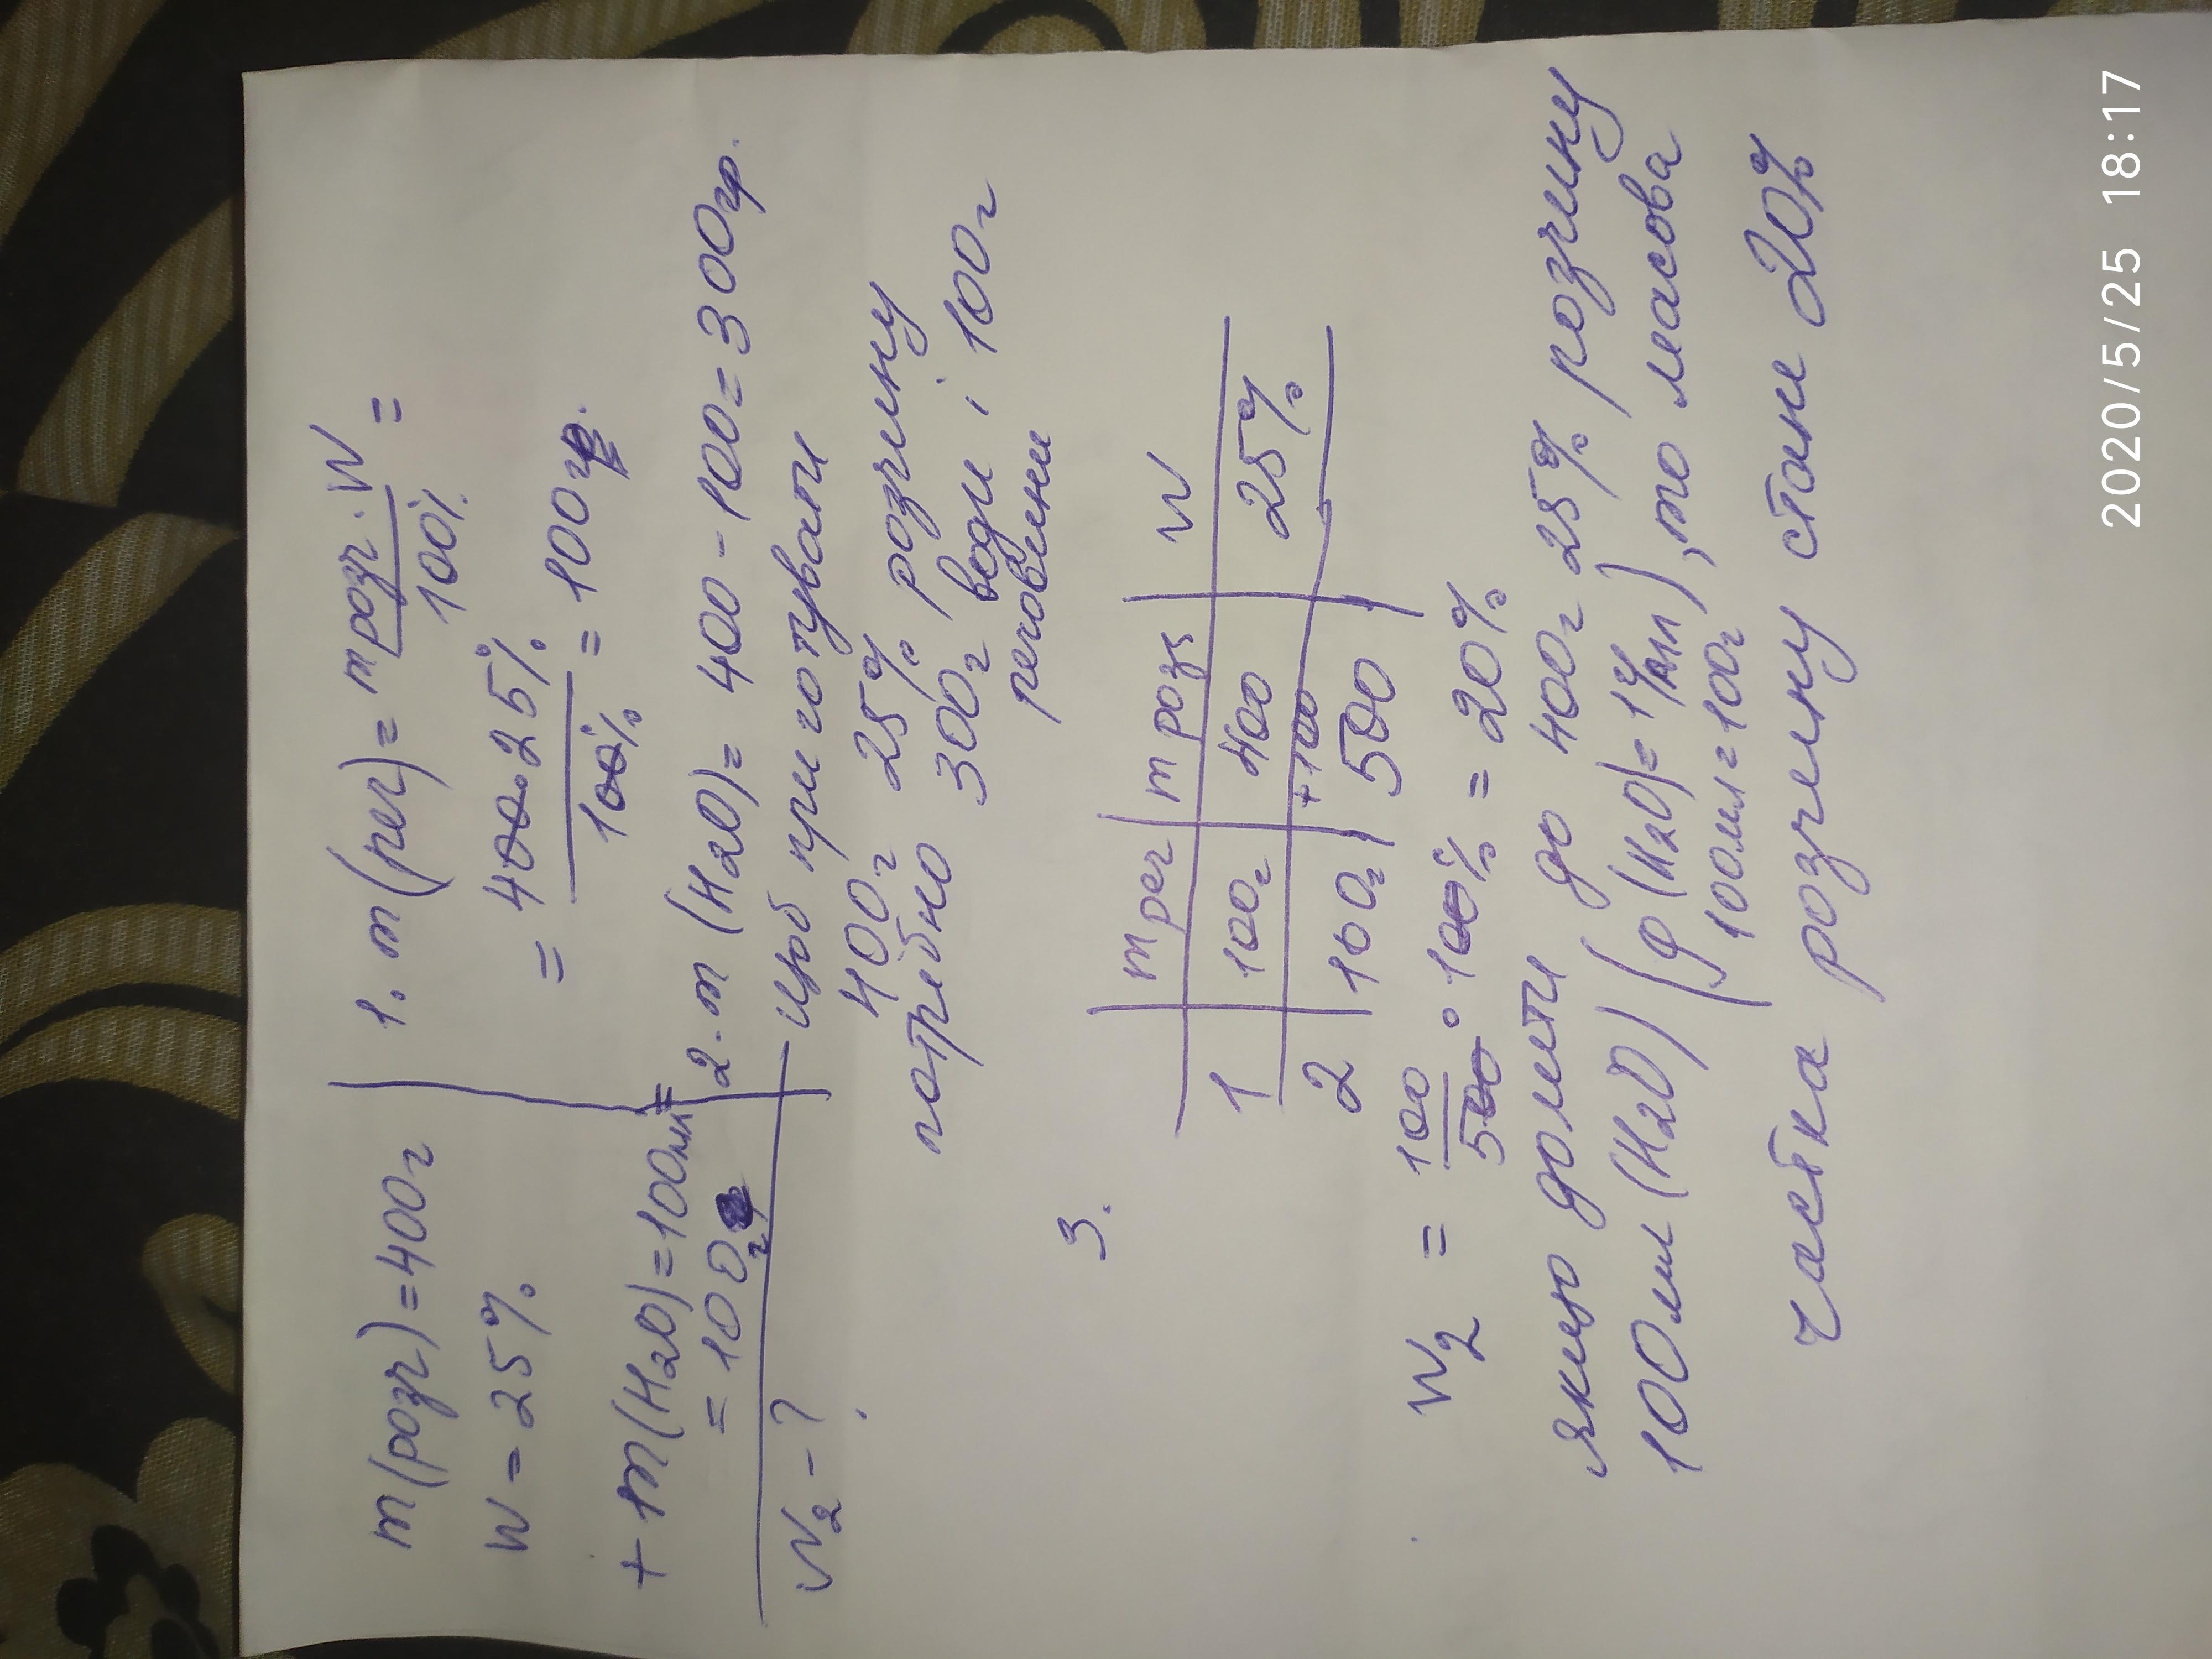 m(розч)=400г
W = 25%
+ m(H₂O)=100мл=
= 100г
W₂ - ?
1. m(реч)= m розч · W / 100% =
= 400·25% / 100% = 100гр.
2. m (H₂O)= 400-100=300гр.
щоб приготувати
400г 25% розчину
потрібно 300г води і 100г
речовини
3.
m реч | m розч | W
1 | 100г | 400 | 25%
+100
2 | 100г | 500
W₂ = 100/500 · 100% = 20%
якщо долити до 400г 25% розчину
100мл (H₂O) (ρ (H₂O)=1г/мл), то масова
100мл=100г
частка розчину стане 20%
2020/5/25 18:17